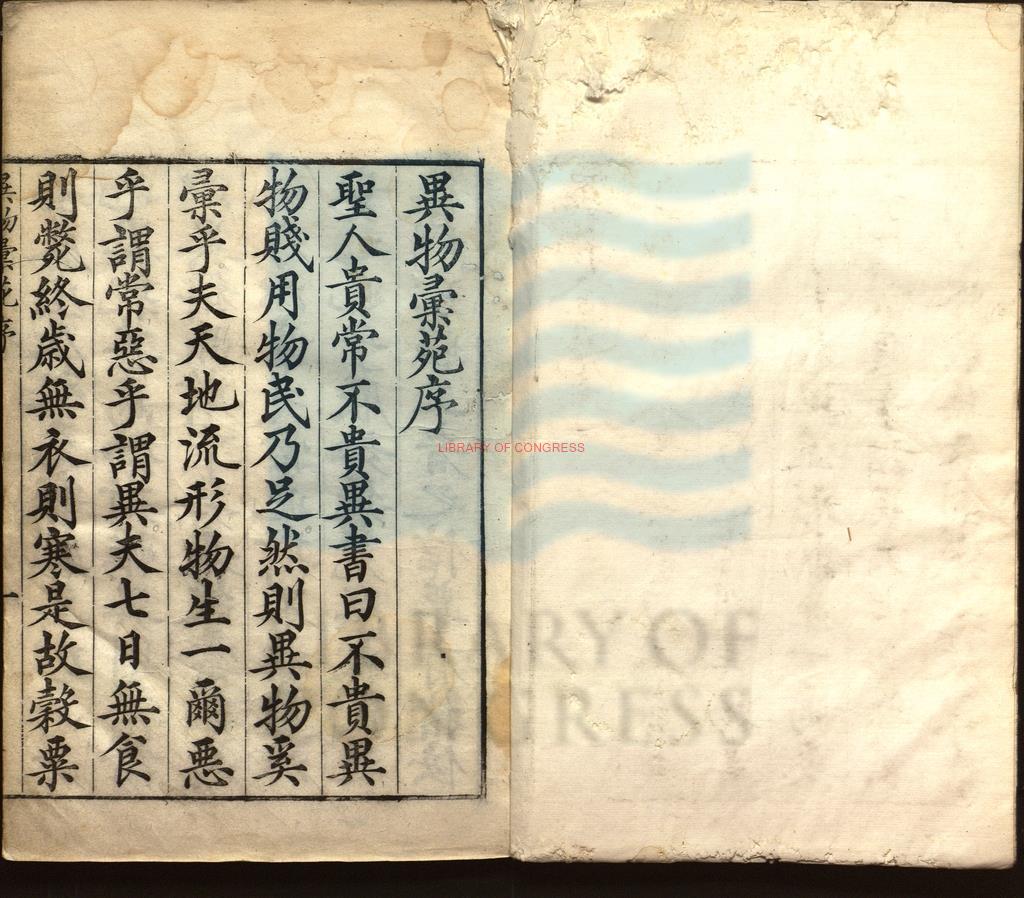 異物彙苑序
聖人貴常不貴異書曰不貴異
物賤用物民乃足然則異物奚
彙乎夫天地流形物生一爾惡
乎謂常惡乎謂異夫七日無食
則斃終歲無衣則寒是故穀粟
異物彙苑序
一
LIBRARY OF CONGRESS
LIBRARY OF
CONGRESS